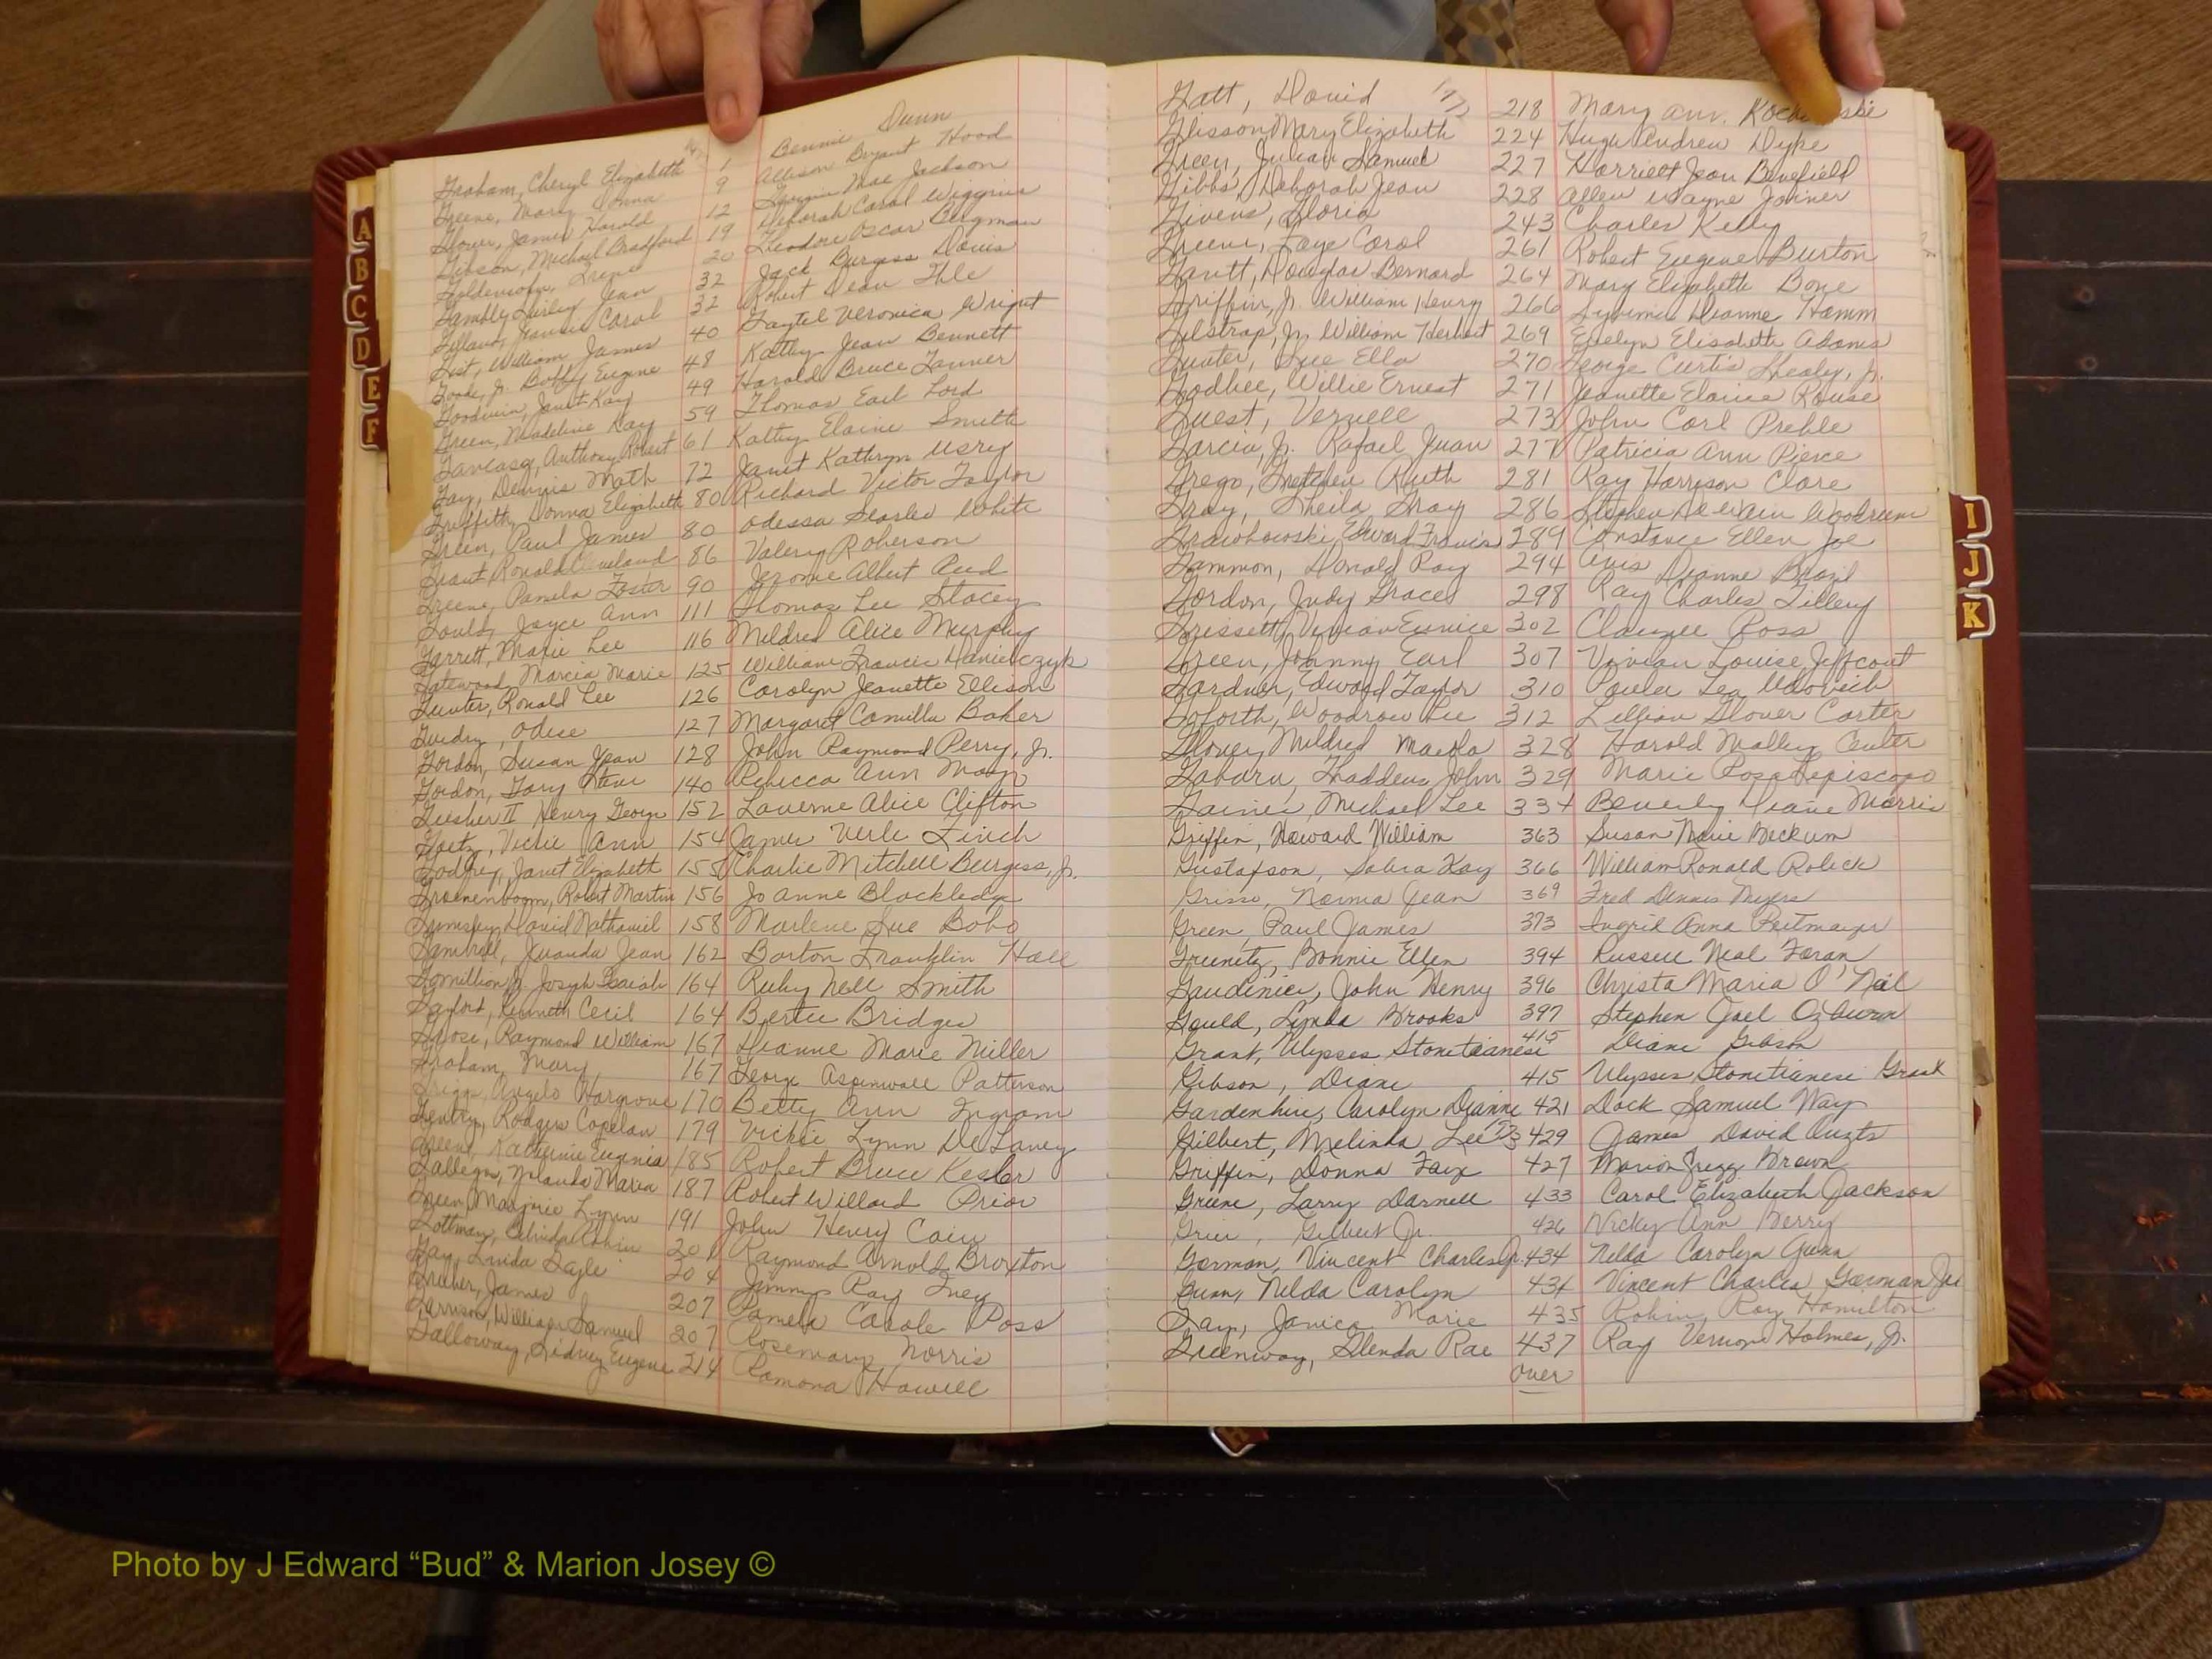 Graham, Cheryl Elizabeth 1 Bennie Dunn
Greene, Mary Donna 9 Allison Bryant Hood
Glover, James Harold 12 Mae Jackson
Gibson, Michael Bradford 19 Deborah Carol Wiggins
Irene 20 Theodore Oscar Bergman
Jean 32 Jack Burgess Davis
Carol 32 Robert Dean
Gist, William James 40 Veronica Wright
Goode, Jr. Bobby Eugene 48 Kathy Jean Bennett
Goodwin, Janet Kay 49 Harold Bruce Tanner
Green, Madeline Kay 59 Thomas Earl Lord
Anthony Robert 61 Kathy Elaine Smith
Gay, Dennis Math 72 Janet Kathryn Usry
Griffith, Donna Elizabeth 80 Richard Victor Taylor
Green, Paul James 80 Odessa Searles White
Grant, Ronald 86 Valery Roberson
Greene, Pamela Foster 90 Jerome Albert Reed
Gould, Joyce Ann 111 Thomas Lee Stacey
Garrett, Marie Lee 116 Mildred Alice Murphy
Gatewood, Marcia Marie 125 William Francis Danielczyk
Gunter, Ronald Lee 126 Carolyn Jeanette Ellison
Guidry, Odise 127 Margaret Camilla Baker
Gordon, Susan Jean 128 John Raymond Perry, Jr.
Gordon, Gary Steve 140 Rebecca Ann
Guesher II Henry George 152 Laverne Alice Clifton
Goetz, Vickie Ann 154 James Verle Finch
Godfrey, Janet Elizabeth 155 Charlie Mitchell Burgess, Jr.
Groenenboom, Robert Martin 156 Jo Anne Blackledge
Grimsley, David Nathaniel 158 Marlene Sue Bobo
Gambrell, Juanda Jean 162 Barton Franklin Hall
Gomillion, Jr. Joseph Isaiah 164 Ruby Nell Smith
Gayford, Kenneth Cecil 164 Bertie Bridges
Grose, Raymond William 167 Dianne Marie Miller
Graham, Mary 167 George Aspinwall Patterson
Griggs, Angelo Hargrove 170 Betty Ann Ingram
Gentry, Rodgers Copelan 179 Vickie Lynn DeLaney
Green, Katherine Eugenia 185 Robert Bruce Kesler
Gallegos, Yolanda Maria 187 Robert Willard Prior
Green, Marjorie Lynn 191 John Henry Cain
Gottman, 201 Raymond Arnold Broxton
Gay, Linda Gayle 204 Jimmy Ray Ivey
James 207 Pamela Carole Poss
Garrison, William Samuel 207 Rosemary Norris
Galloway, Sidney Eugene 214 Ramona Howell
Gatt, David 218 Mary Ann
Glisson, Mary Elizabeth 224 Hugh Andrew Dyke
Green, Julian Samuel 227 Harriett Jean Benefield
Gibbs, Deborah Jean 228 Allen Wayne Joiner
Givens, Gloria 243 Charles Kelly
Greene, Faye Carol 261 Robert Eugene Burton
Gantt, Douglas Bernard 264 Mary Elizabeth Bone
Griffin, Jr. William Henry 266 Dianne Hamm
Gilstrap, Jr. William Herbert 269 Evelyn Elizabeth Adams
Gunter, Sue Ella 270 George Curtis Shealy, Jr.
Godbee, Willie Ernest 271 Jeanette Elaine Rouse
Guest, Verzelle 273 John Carl Preble
Garcia, Jr. Rafael Juan 277 Patricia Ann Pierce
Grego, Gretchen Ruth 281 Ray Harrison Clare
Gray, Sheila Gray 286 Stephen
Edward Travis 289 Constance Ellen Joe
Gammon, Donald Ray 294 Avis Dianne Brazil
Gordon, Judy Grace 298 Ray Charles Tillery
Grissett, Vivian Eunice 302 Clauzee Ross
Green, Johnny Earl 307 Vivian Louise Jeffcoat
Gardner, Edward Taylor 310 Paula Lea
Goforth, Woodrow Lee 312 Lillian Glover Carter
Glover, Mildred Maeola 328 Harold Malley Center
Gaburu, Thaddeus John 329 Marie Rosa
Gaines, Michael Lee 334 Beverly Diane Morris
Griffin, Howard William 363 Susan Marie Beckum
Gustafson, Sabra Kay 366 William Ronald Robeck
Grisso, Norma Jean 369 Fred Dennis Myers
Green, Paul James 373 Ingrid Anna Reitmayer
Gruenitz, Bonnie Ellen 394 Russell Neal Foran
Gaudinier, John Henry 396 Christa Maria O'Neil
Gould, Lynda Brooks 397 Stephen Joel Ozburn
Grant, Ulysses Stonetianesi 415 Diane Gibson
Gibson, Diane 415 Ulysses Stonetianesi Grant
Gardenhire, Carolyn Dianne 421 Dock Samuel Way
Gilbert, Melinda Lee 429 James David Ouzts
Griffin, Donna Faye 427 Marion Gregg Brown
Greene, Larry Darnell 433 Carol Elizabeth Jackson
Grier, Gilbert Jr. 426 Vicky Ann Berry
Gorman, Vincent Charles Jr. 434 Nelda Carolyn Gunn
Gunn, Nelda Carolyn 434 Vincent Charles Gorman Jr
Gay, Janice Marie 435 Robin Ray Hamilton
Greenway, Glenda Rae 437 Ray Vernon Holmes, Jr.
over
A
B
C
D
E
F
I
J
K
H
Photo by J Edward “Bud” & Marion Josey ©